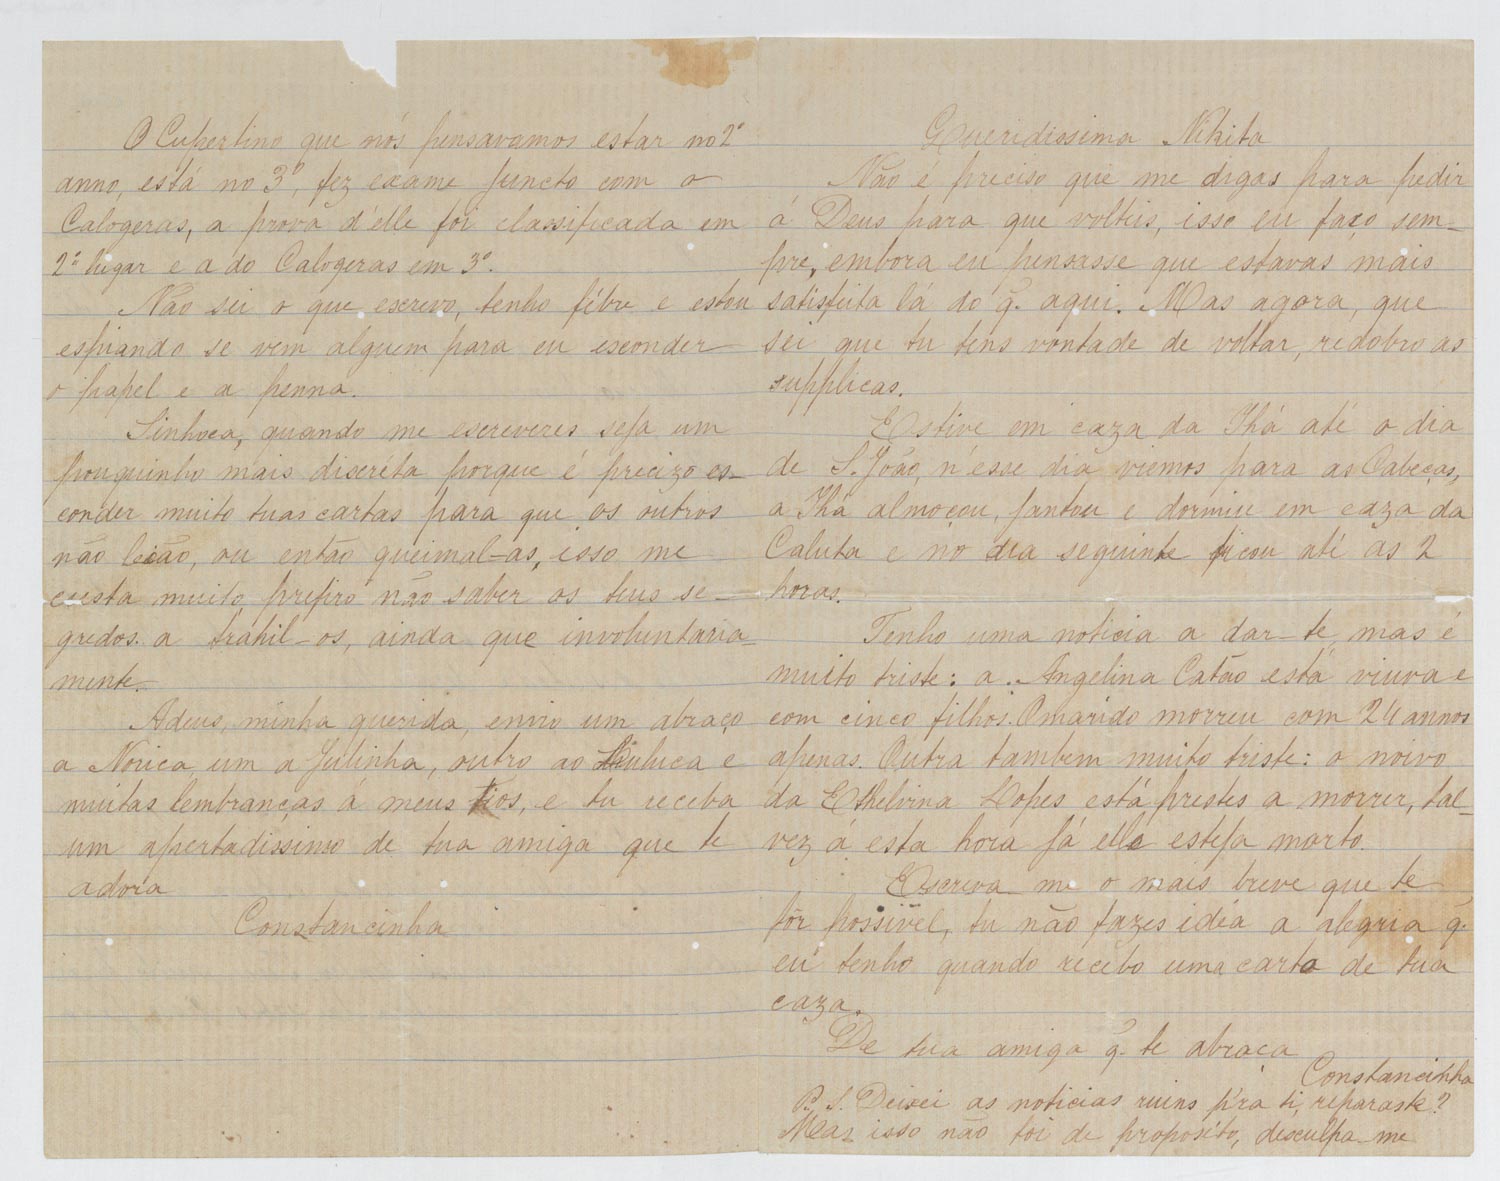 O Cupertino que nós pensavamos estar no 2º
anno, está no 3º, fez exame juncto com o
Calogeras, a prova d'elle foi classificada em
2º lugar e a do Calogeras em 3º.
Não sei o que escrevo, tenho fébre e estou
espiando se vem alguem para eu esconder
o papel e a penna.
Sinhoca, quando me escreveres seja um
pouquinho mais discréta porque é precizo es-
conder muito tuas cartas para que os outros
não leião, ou então queimal-as, isso me
custa muito, prefiro não saber os teus se-
gredos a trahil-os, ainda que involuntaria-
mente.
Adeus, minha querida, envio um abraço
a Norica, um a Julinha, outro ao e
muitas lembranças á meus tios, e tu receba
um apertadissimo de tua amiga que te
adora
Constancinha
Queridissima Nhita
Não é preciso que me digas para pedir
á Deus para que volteis, isso eu faço sem-
pre, embora eu pensasse que estavas mais
satisfeita lá do q. aqui. Mas agora, que
sei que tu tens vontade de voltar, redobro as
supplicas.
Estive em caza da Ihá até o dia
de S. João, n'esse dia viemos para as Cabeças,
a Ihá almoçou, jantou e dormiu em caza da
Caluta e no dia seguinte ficou até as 2
horas.
Tenho uma noticia a dar-te, mas é
muito triste: a Angelina Catão está viuva e
com cinco filhos. O marido morreu com 24 annos
apenas. Outra tambem muito triste: o noivo
da Ethelvina Lopes está prestes a morrer, tal-
vez á esta hora já elle esteja morto.
Escreva-me o mais breve que te
fôr possivel, tu não fazes idéa a alegria q.
eu tenho quando recebo uma carta de tua
caza.
De tua amiga q. te abraça
Constancinha
P. S. Deixei as noticias ruins p'ra ti, reparaste?
Mas isso não foi de proposito, desculpa-me